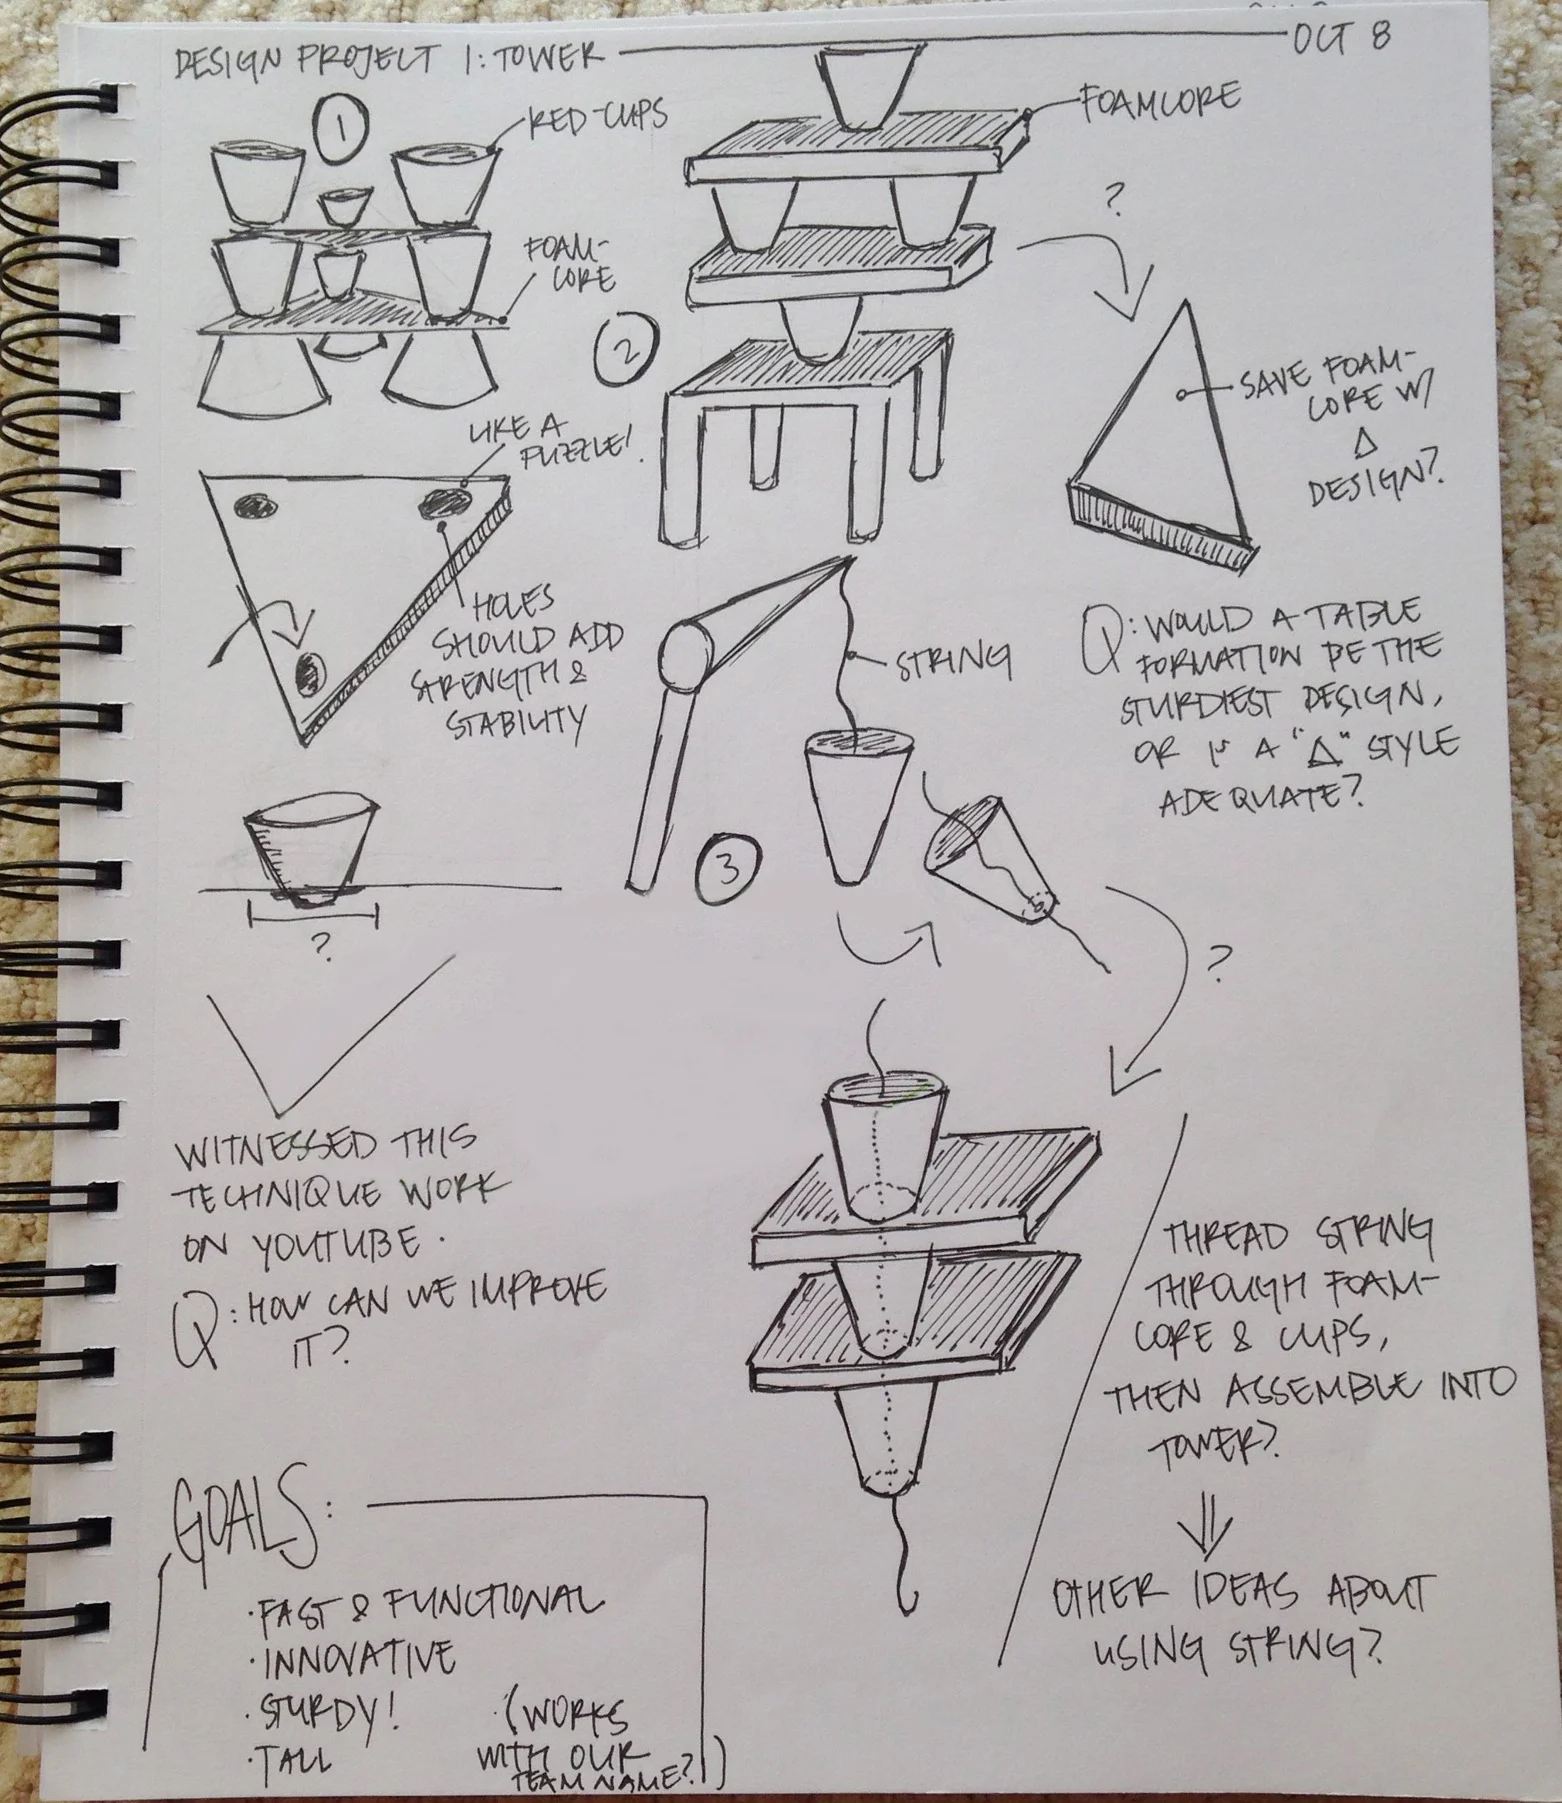 DESIGN PROJECT 1: TOWER
OCT 8
1
RED-CUPS
FOAM-
CORE
LIKE A
PUZZLE!
HOLES
SHOULD ADD
STRENGTH &
STABILITY
?
WITNESSED THIS
TECHNIQUE WORK
ON YOUTUBE.
Q: HOW CAN WE IMPROVE
IT?
GOALS:
· FAST & FUNCTIONAL
· INNOVATIVE
· STURDY!
· TALL
(WORKS
WITH OUR
TEAM NAME?!)
2
FOAMCORE
?
SAVE FOAM-
CORE W/
Δ
DESIGN?
Q: WOULD A TABLE
FORMATION BE THE
STURDIEST DESIGN,
OR IS A "Δ" STYLE
ADEQUATE?
3
STRING
?
THREAD STRING
THROUGH FOAM-
CORE & CUPS,
THEN ASSEMBLE INTO
TOWER?
OTHER IDEAS ABOUT
USING STRING?